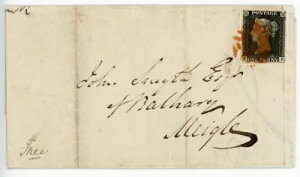 POSTAGE
ONE PENNY
John Smyth Esqr
of Balhary
Meigle
Free